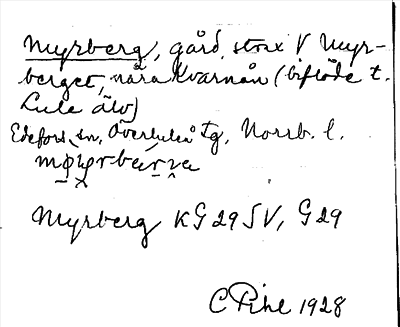 Myrberg, gård, strax V Myr-
berget, nära Kvarnån (biflöde t.
Lule älv)
Edefors sn, Överluleå tg, Norrb. l.
Myrberg KG 29 SV, G29
C Pihl 1928